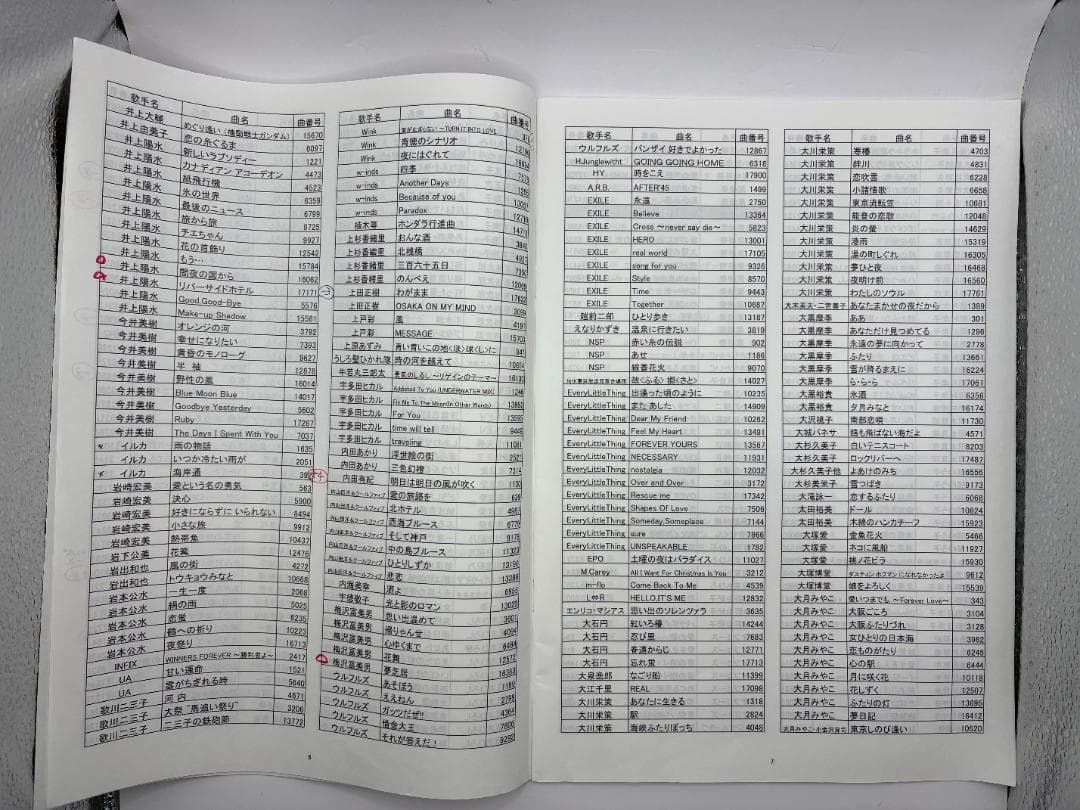 歌手名 曲名 曲番号
井上大輔 めぐり逢い（機動戦士ガンダム） 15670
井上由美子 恋の糸ぐるま 6097
井上陽水 新しいラプソディー 1221
井上陽水 カナディアン アコーデオン 4473
井上陽水 紙飛行機 4523
井上陽水 氷の世界 6359
井上陽水 最後のニュース 6799
井上陽水 旅から旅 9725
井上陽水 チエちゃん 9927
井上陽水 花の首飾り 12542
井上陽水 もう… 15784
井上陽水 闇夜の国から 16062
井上陽水 リバーサイドホテル 17171
井上陽水 Good Good-Bye 5576
井上陽水 Make-up Shadow 15561
今井美樹 オレンジの河 3792
今井美樹 幸せになりたい 7393
今井美樹 黄昏のモノローグ 9627
今井美樹 半袖 12870
今井美樹 野性の風 16014
今井美樹 Blue Moon Blue 14017
今井美樹 Goodbye Yesterday 5602
今井美樹 Ruby 17287
今井美樹 The Days I Spent With You 7037
イルカ 雨の物語 1635
イルカ いつか冷たい雨が 2051
イルカ 海岸通
岩崎宏美 愛という名の勇気 563
岩崎宏美 決心 5900
岩崎宏美 好きにならずに いられない 8494
岩崎宏美 小さな旅 9912
岩崎宏美 熱帯魚 10437
岩下公美 花簪 12476
岩出和也 風の街 4272
岩出和也 トウキョウみなと 10668
岩本公水 一生一度 2068
岩本公水 絹の雨 5025
岩本公水 恋蛍 6235
岩本公水 鶴への祈り 10223
岩本公水 夜祭り 16713
INFIX WINNERS FOREVER ～勝利者よ～ 2417
UA 甘い運命 1521
UA 雲がちぎれる時 5640
歌川二三子 河内 4671
歌川二三子 大祭“馬追い祭り” 3206
歌川二三子 二三子の鉄砲節 13772
6
歌手名 曲名 曲番号
Wink 寂が止まらない ～TURN IT INTO LOVE
Wink 背徳のシナリオ
Wink 夜にはぐれて
w-inds 四季
w-inds Another Days
w-inds Because of you
w-inds Paradox
植木等 ホンダラ行進曲
上杉香緒里 おんな酒
上杉香緒里 北桟橋
上杉香緒里 三百六十五日
上杉香緒里 のんべえ
上田正樹 わがまま
上田正樹 OSAKA ON MY MIND
上戸彩 風
上戸彩 MESSAGE
上原あずみ 青い青いこの地＜ほ＞球＜し＞に
うしろ髪ひかれ隊 時の河を越えて
牛若丸三郎太 勇気のしるし ～リゲインのテーマ～
宇多田ヒカル Addicted To You (UNDERWATER MIX)
宇多田ヒカル Fly Me To The Moon(In Other Words)
宇多田ヒカル For You
宇多田ヒカル time will tell
宇多田ヒカル traveling
内田あかり 浮世絵の街
内田あかり 三色幻燈
内田有紀 明日は明日の風が吹く
内山田洋&クールファイブ 愛の旅路を
内山田洋&クールファイブ 北ホテル
内山田洋&クールファイブ 西海ブルース
内山田洋&クールファイブ そして神戸
内山田洋&クールファイブ 中の島ブルース
内山田洋&クールファイブ ひとりしずか
内山田洋&クールファイブ 悲恋
内海美幸 酒よ
宇徳敬子 光と影のロマン
梅沢富美男 思い出温めて
梅沢富美男 帰りゃんせ
梅沢富美男 心ゆくまで
梅沢富美男 花舞
梅沢富美男 夢芝居
ウルフルズ あそぼう
ウルフルズ ええねん
ウルフルズ ガッツだぜ!!
ウルフルズ 借金大王
ウルフルズ それが答えだ！
歌手名 曲名 曲番号
ウルフルズ バンザイ 好きでよかった 12867
H.Junglewitht GOING GOING HOME 6318
HY 時をこえ 17900
A.R.B. AFTER45 1499
EXILE 永遠 2750
EXILE Believe 13364
EXILE Cross ～never say die～ 5623
EXILE HERO 13001
EXILE real world 17105
EXILE song for you 9326
EXILE Style 8570
EXILE Time 9443
EXILE Together 10687
越前二郎 ひとり歩き 13187
えなりかずき 温泉に行きたい 3819
NSP 赤い糸の伝説 902
NSP あせ 1186
NSP 線香花火 9070
故＜ふる＞郷＜さと＞ 14027
EveryLittleThing 出逢った頃のように 10235
EveryLittleThing また あした 14909
EveryLittleThing Dear My Friend 10262
EveryLittleThing Feel My Heart 13491
EveryLittleThing FOREVER YOURS 13567
EveryLittleThing NECESSARY 11931
EveryLittleThing nostalgia 12032
EveryLittleThing Over and Over 3172
EveryLittleThing Rescue me 17342
EveryLittleThing Shapes Of Love 7506
EveryLittleThing Someday,Someplace 7144
EveryLittleThing sure 7866
EveryLittleThing UNSPEAKABLE 1782
EPO 土曜の夜はパラダイス 11027
M.Carey All I Want For Christmas Is You 3212
m-flo Come Back To Me 4539
L⇔R HELLO,IT'S ME 12832
エンリコ・マシアス 思い出のソレンツァラ 3635
大石円 紅いろ椿 14244
大石円 忍び里 7693
大石円 春遠からじ 12771
大石円 忘れ蛍 17713
大泉逸郎 なごり船 11399
大江千里 REAL 17098
大川栄策 あなたに生きる 1318
大川栄策 駅 2824
大川栄策 海峡ふたりぼっち 4048
歌手名 曲名 曲番号
大川栄策 寒椿 4703
大川栄策 絆川 4831
大川栄策 恋吹雪 6228
大川栄策 小諸情歌 6658
大川栄策 東京流転笠 10681
大川栄策 能登の恋歌 12048
大川栄策 炎の螢 14629
大川栄策 港雨 15319
大川栄策 湯の町しぐれ 16305
大川栄策 夢ひと夜 16468
大川栄策 夜明け前 16560
大川栄策 わたしのソウル 17761
大木英夫・二宮善子 あなたまかせの夜だから 1389
大黒摩季 ああ 301
大黒摩季 あなただけ見つめてる 1296
大黒摩季 永遠の夢に向かって 2778
大黒摩季 ふたり 13661
大黒摩季 雪が降るまえに 16224
大黒摩季 ら・ら・ら 17061
大黒裕貴 氷酒 6356
大黒裕貴 夕月みなと 16174
大沢桃子 南部恋唄 11730
大城バネサ 鴎も飛ばない海だよ 4571
大杉久美子 白いテニスコート 8203
大杉久美子 ロックリバーへ 17487
大杉久美子他 よあけのみち 16556
大杉美采子 雪つばき 9173
大滝詠一 恋するふたり 6069
太田裕美 ドール 10824
太田裕美 木綿のハンカチーフ 15923
大塚愛 金魚花火 5466
大塚愛 ネコに風船 11927
大塚愛 桃ノ花ビラ 15930
大塚博堂 ダスティン・ホフマンになれなかったよ 9612
大塚博堂 娘をよろしく 15539
大月みやこ 愛いつまでも ～Forever Love～ 343
大月みやこ 大阪ごころ 3104
大月みやこ 大阪ふたりづれ 3128
大月みやこ 女ひとりの日本海 3962
大月みやこ 恋ものがたり 6246
大月みやこ 心の駅 6444
大月みやこ 月に咲く花 10118
大月みやこ 花しずく 12507
大月みやこ ふたりの灯 13695
大月みやこ 夢日記 16412
東京しのび逢い 10620
7